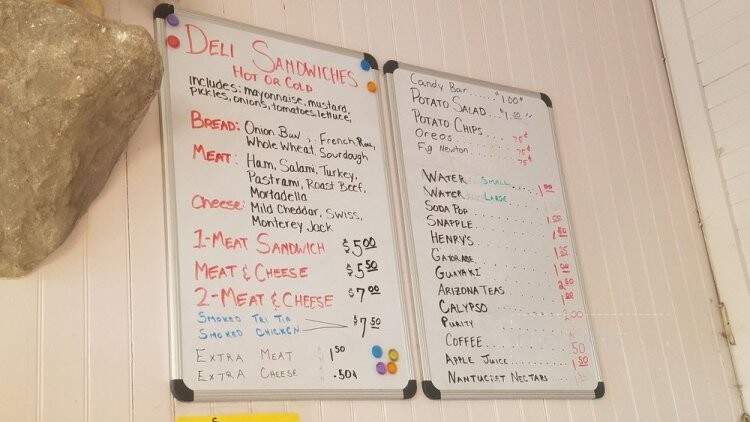 DELI SANDWICHES
HOT OR COLD
includes: mayonnaise, mustard,
pickles, onions, tomatoes, lettuce,
BREAD: Onion Bun, French Roll,
Whole Wheat Sourdough
MEAT: Ham, Salami, Turkey,
Pastrami, Roast Beef,
Mortadella
Cheese: Mild Cheddar, Swiss,
Monterey Jack
1-MEAT SANDWICH $5.00
MEAT & CHEESE $5.50
2-MEAT & CHEESE $7.00
SMOKED TRI TIP
SMOKED CHICKEN $7.50
EXTRA MEAT 1.50
EXTRA CHEESE .50¢
Candy Bar $1.00
POTATO SALAD $1.50
POTATO CHIPS 75¢
Oreos 75¢
Fig Newton 75¢
WATER SMALL 1.00
WATER LARGE
SODA POP
SNAPPLE
HENRY'S
GATORADE
GUAYAKI
ARIZONA TEAS
CALYPSO
PURITY
COFFEE
APPLE JUICE
NANTUCKET NECTARS